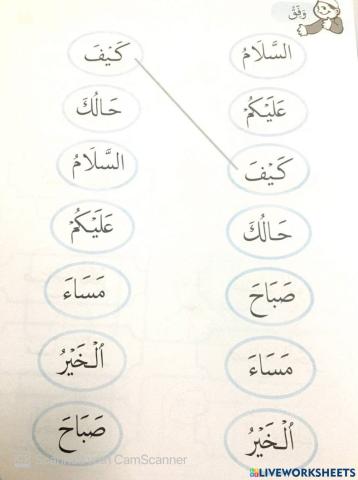 وَفِّقْ
السَّلَامُ كَيْفَ
عَلَيْكُمْ حَالُكَ
كَيْفَ السَّلَامُ
حَالُكَ عَلَيْكُمْ
صَبَاحَ مَسَاءَ
مَسَاءَ الْخَيْرُ
الْخَيْرُ صَبَاحَ
CamScanner
LIVEWORKSHEETS